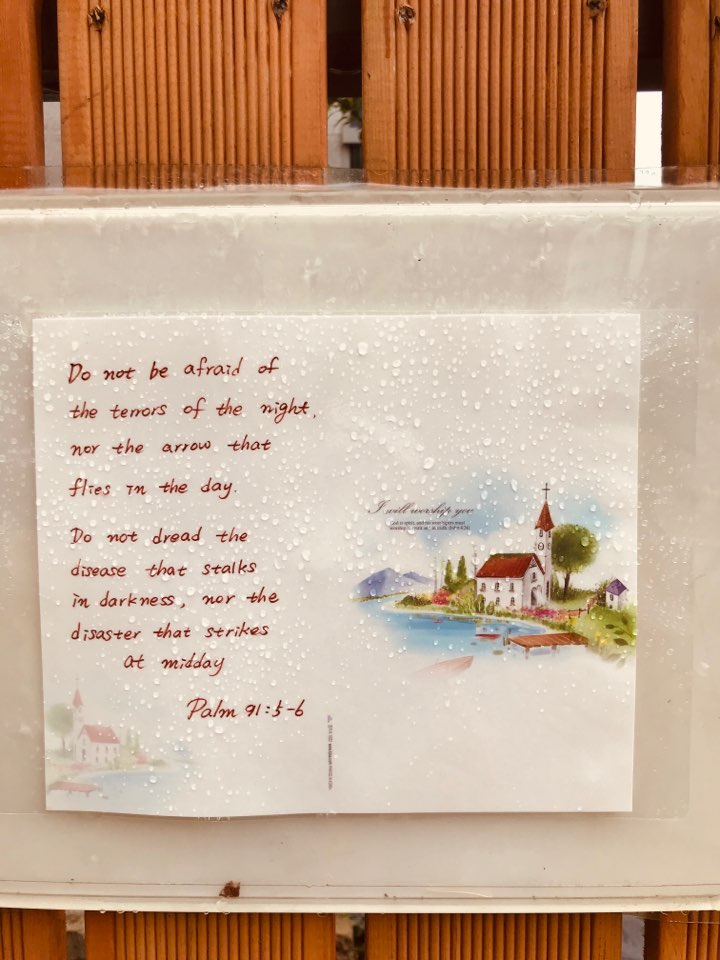 Do not be afraid of
the terrors of the night,
nor the arrow that
flies in the day.
Do not dread the
disease that stalks
in darkness, nor the
disaster that strikes
at midday
Palm 91:5-6
I will worship you